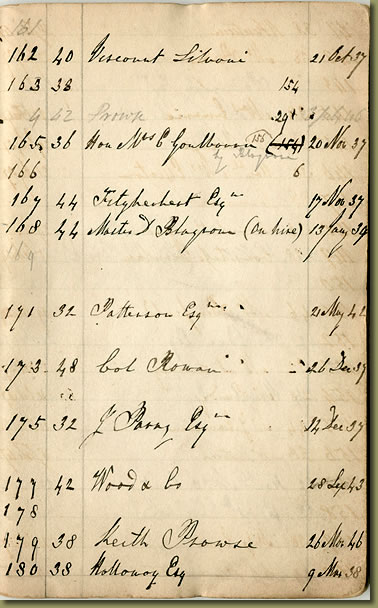 161
162 40 Viscount Silvani 21 Oct 37
163 38 154
4 62 Prowse 294
165 36 Hon Mrs E Goulbourn 156 (154) 20 Nov 37
by Blagrove
166 6
167 44 Fitzherbert Esqre 17 Nov 37
168 44 Master D Blagrove (on hire) 13 Jany 39
169
171 32 Patterson Esqre 21 May 42
173 48 Col Rowan 26 Dec 37
175 32 J Esqre 14 Dec 37
177 42 Wood & Co 28 Sep 43
178
179 38 Keith Prowse 26 Mar 46
180 38 Holloway Esq 9 Mar 38